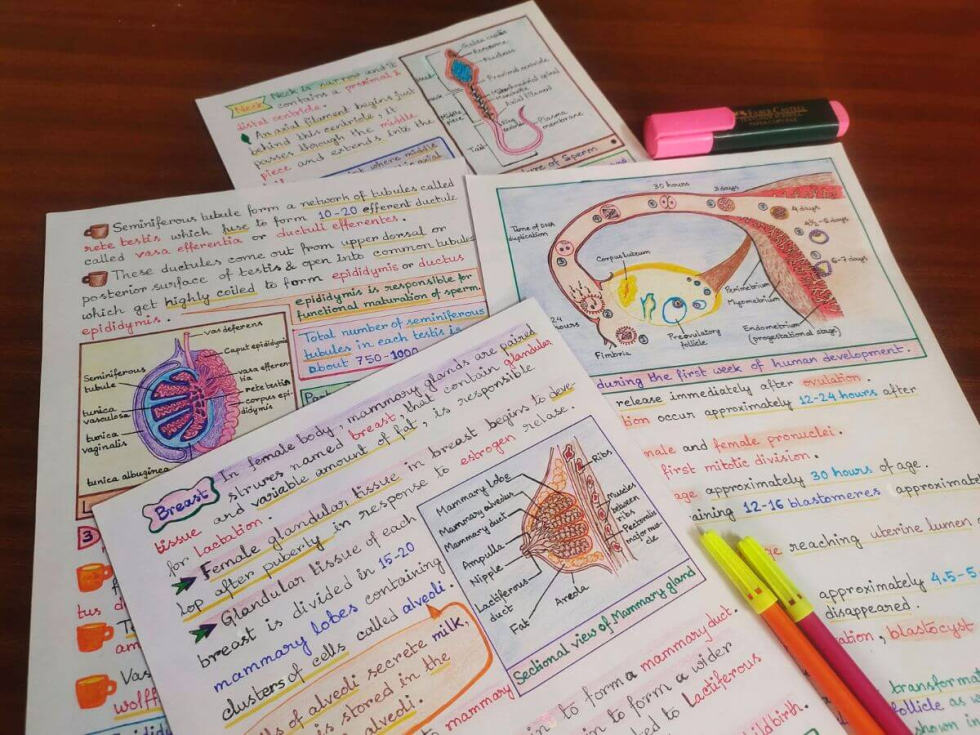 Neck
Neck is narrow and it
contains a proximal &
distal centriole.
An axial filament begins just
behind this centriole, it
passes through the middle
piece and extends into the
where middle
Nucleus
Proximal centriole
Axial filament
Middle piece
Plasma membrane
Tail
ure of Sperm
FABER-CASTELL
Seminiferous tubule form a network of tubules called
rete testis which fuse to form 10-20 efferent ductule
called vasa efferentia or ductuli efferentes.
These ductules come out from upper dorsal or
posterior surface of testis & open into common tubule
which get highly coiled to form epididymis or ductus
epididymis.
epididymis is responsible for
functional maturation of sperm.
Total number of seminiferous
tubules in each testis is
about 750-1000
vas deferens
Caput epididymis
Seminiferous tubule
vasa efferentia
rete testis
corpus epididymis
tunica vasculosa
tunica vaginalis
tunica albuginea
3
tus d
am
Vas
wolff
30 hours
3 days
4 days
4½-5 days
6-7 days
Time of DNA duplication
Corpus luteum
Perimetrium
Myometrium
24 hours
Fimbria
Preovulatory follicle
Endometrium (progestational stage)
during the first week of human development.
release immediately after ovulation.
tion occur approximately 12-24 hours after
male and female pronuclei.
first mitotic division.
age approximately 30 hours of age.
aining 12-16 blastomeres approximate
reaching uterine lumen
approximately 4.5-5.
disappeared.
ation, blastocyst
transforma
follicle as w
shown in
Breast
In female body, mammary glands are paired
strures named breast, that contain glandular
tissue and variable amount of fat, is responsible
for lactation.
Female glandular tissue in breast begins to deve-
lop after puberty in response to estrogen relase.
Glandular tissue of each
breast is divided in 15-20
mammary lobes containing
clusters of cells called alveoli.
s of alveoli secrete milk,
is stored in the
alveoli.
Mammary lobe
Mammary alveolus
Mammary duct
Ampulla
Nipple
Lactiferous duct
Fat
Areola
Ribs
Muscles between ribs
Pectoralis major muscle
Sectional view of Mammary gland
to form a mammary duct.
mammary
in to form a wider
ted to Lactiferous
ildbirth.